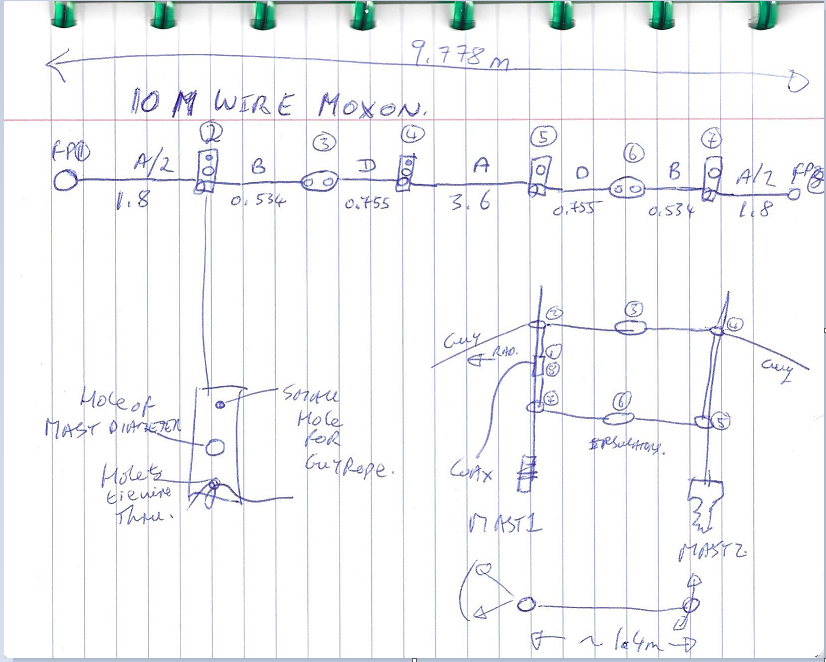 9.778 m
10 M WIRE MOXON.
② ③ ④ ⑤ ⑥ ⑦
FP① A/2 B D A D B A/2 FP⑧
1.8 0.534 0.755 3.6 0.755 0.534 1.8
② ③ ④
Guy RAD. ① ⑧ Guy
⑦ ⑥ ⑤
Hole of
MAST DIAMETER
SMALL
Hole
FOR
Guy Rope.
INSULATORS.
Hole to
tie wire
Thru.
COAX
MAST 1
MAST 2
~ 1.4m